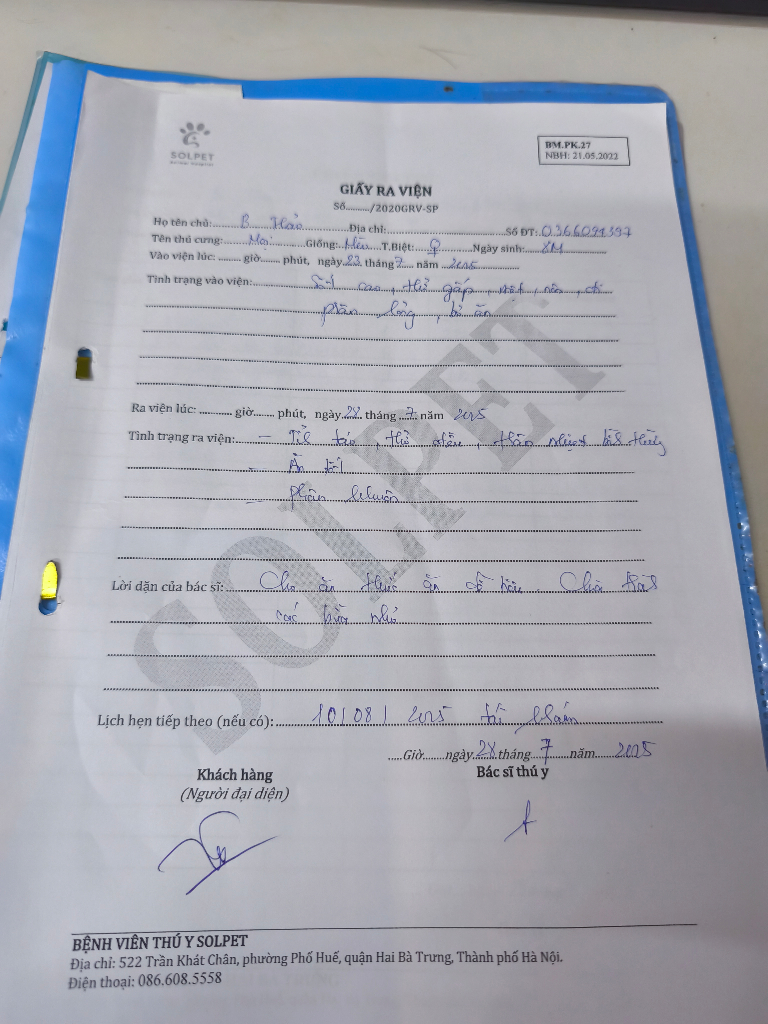 SOLPET
BM.PK.27
NBH: 21.05.2022
GIẤY RA VIỆN
Số........./2020GRV-SP
Họ tên chủ: B. Hảo Địa chỉ: Số ĐT: 0366091397
Tên thú cưng: Giống: Mèo T.Biệt: ♀ Ngày sinh: 8M
Vào viện lúc: ........ giờ....... phút, ngày 23 tháng 7 năm 2025
Tình trạng vào viện: Sốt cao, thở gấp, mệt, nôn, đi
phân lỏng, bỏ ăn
Ra viện lúc: .......... giờ....... phút, ngày 28 tháng 7 năm 2025
Tình trạng ra viện: - Tỉnh táo, thở đều, thân nhiệt bình thường
- Ăn tốt
- phân khuôn
Lời dặn của bác sĩ: Cho ăn thức ăn dễ tiêu. Chia
các bữa nhỏ
Lịch hẹn tiếp theo (nếu có): 10/08/2025 tái khám
.....Giờ.......ngày 28 tháng 7 năm 2025
Khách hàng Bác sĩ thú y
(Người đại diện)
SOLPET
BỆNH VIÊN THÚ Y SOLPET
Địa chỉ: 522 Trần Khát Chân, phường Phố Huế, quận Hai Bà Trưng, Thành phố Hà Nội.
Điện thoại: 086.608.5558